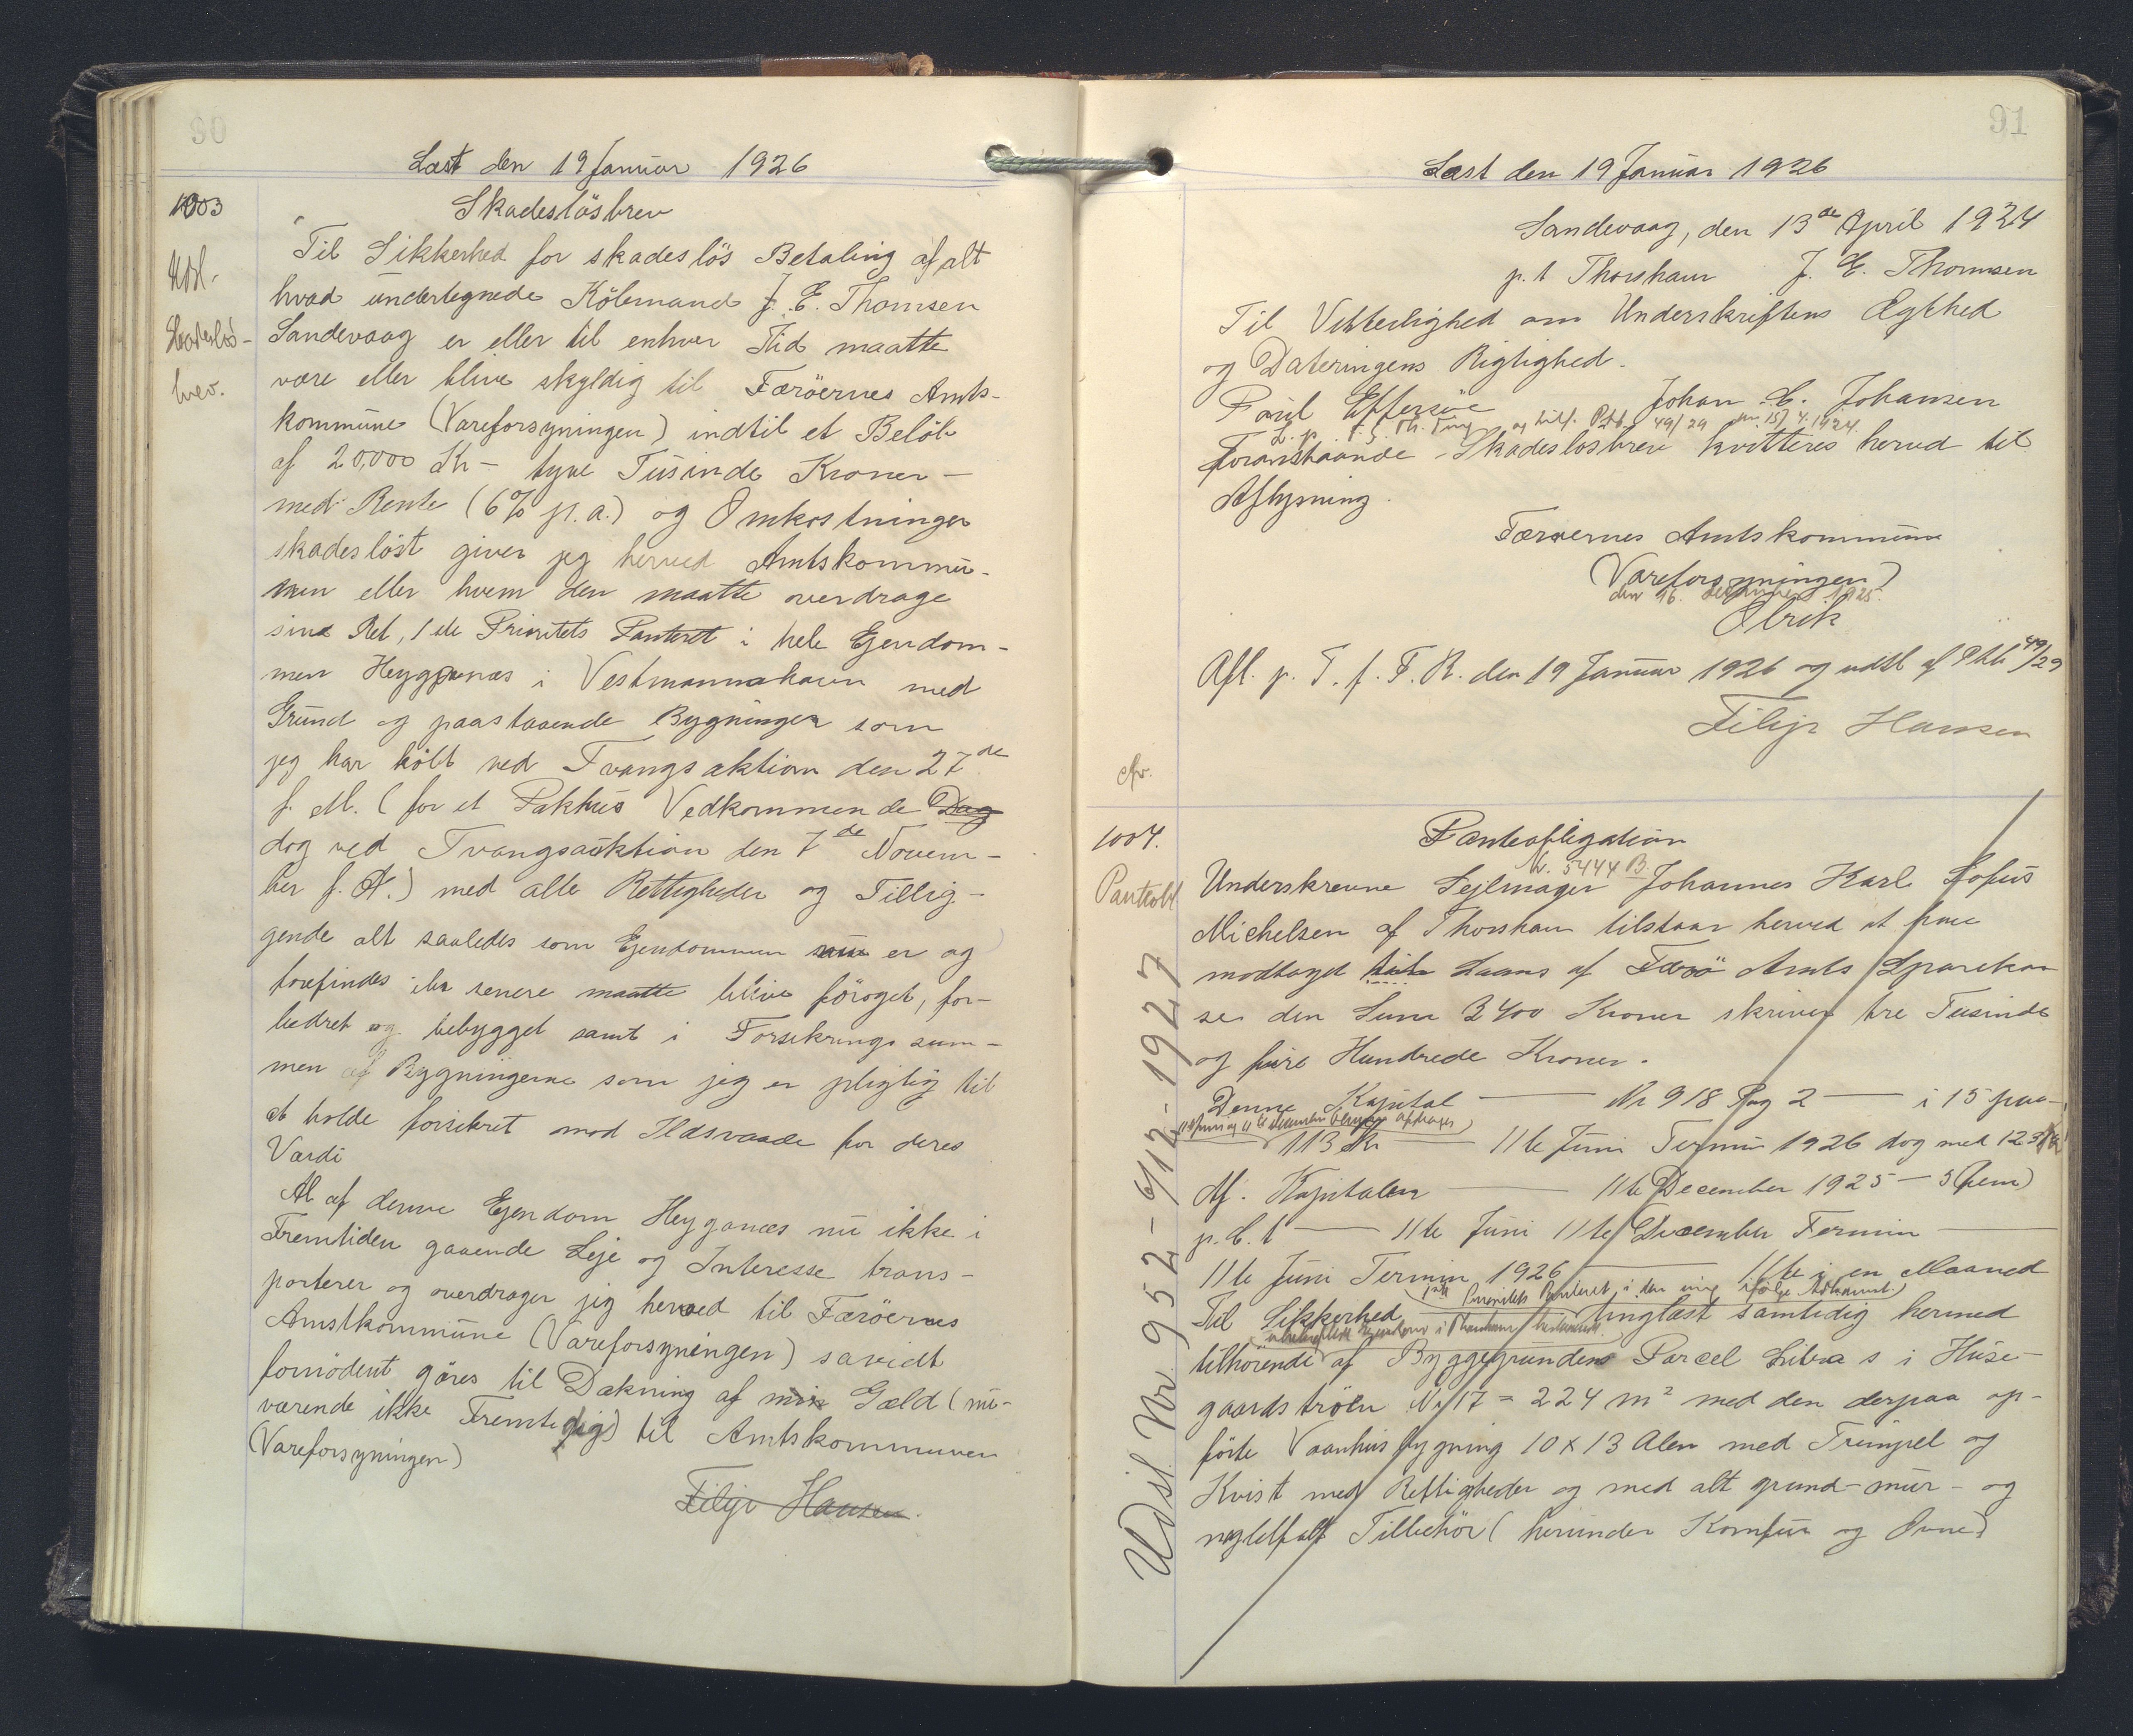 90
Læst den 19 Januar 1926
1003
Udsl.
Skadeslös-
brev.
Skadeslösbrev
Til Sikkerhed for skadeslös Betaling af alt
hvad undertegnede Köbmand J. E. Thomsen
Sandevaag er eller til enhver Tid maatte
være eller blive skyldig til Færöernes Amts-
kommune (Vareforsyningen) indtil et Belöb
af 20,000 Kr - tyve Tusinde Kroner -
med Rente (6% p.a.) og Omkostninger
skadeslöst giver jeg herved Amtskommu-
nen eller hvem den maatte overdrage
sine Ret, 1ste Prioritets Panteret i hele Ejendom-
men Heyganæs i Vestmannahavn med
Grund og paastaaende Bygninger som
jeg har köbt ved Tvangsaktion den 27de
f. M. (for et Pakhus Vedkommende Dag
dog ved Tvangsauktion den 7de Novem-
ber f. A.) med alle Rettigheder og Tillig-
gende alt saaledes som Ejendommen nu er og
forefindes eller senere maatte blive föroget, for-
bedret og bebygget samt i Forsikrings sum-
men af Bygningerne som jeg er pligtig til
at holde forsikret mod Ildsvaade for deres
Værdi
Al af denne Ejendom Heyganæs nu ikke i
Fremtiden gaaende Leje og Interesse trans-
porterer og overdrager jeg herved til Færöernes
Amstkommune (Vareforsyningen) savidt
fornödent göres til Dækning af min Gæld (nu-
værende ikke Fremtidig) til Amtskommunen
(Vareforsyningen)
Filip Hansen.
91
Læst den 19 Januar 1926
Sandevaag, den 13de April 1924
p.t Thorshavn J. E. Thomsen
Til Vitterlighed om Underskriftens Ægthed
og Dateringens Rigtighed.
Poul Effersöe Johan C. Johansen
og tilf. Ptb. 49/29 15/4.1924.
Foranstaaende Skadeslosbrev kvitteres herved til
Aflysning.
Færøernes Amtskommune
(Vareforsyningen)
den 16. 1925.
Elrik
Afl. p. T. f. F. R. den 19 Januar 1926 og udsl af Ptb 49/29
Filip Hansen
cfr.
1004.
Panteobl
Panteobligation
Nr. 5444 B.
Underskrevne Sejlmager Johannes Karl Sofus
Michelsen af Thorshavn tilstaar herved at have
modtaget til Laans af Færö Amts Sparekas
se den Sum 3400 Kroner skriver tre Tusinde
og fire Hundrede Kroner.
Denne Kapital — Nr 918 Pag 2 — i 15 paa-
113 Kr — 11te Juni Termin 1926 dog med 123 Kr
Af. Kapitalen — 11te December 1925 — 5 (fem)
p. C. t — 11te Juni 11te December Termin —
11te Juni Termin 1926 — 11te i en Maaned
1ste Prioritets Panteret i den mig ifölge Adkomst
Til Sikkerhed — tinglæst samtidig hermed
tilhörende af Byggegrunden Parcel Litra s i Huse-
gaards tröen Nr 17 = 224 m² med den derpaa op-
förte Vaanhusbygning 10 x 13 Alen med Trimpel og
Kvist med Rettigheder og med alt grund- mur- og
naglefast Tilbehör (herunder Komfur og Ovne)
Udsl. Nr. 952 - 6/12 - 1927